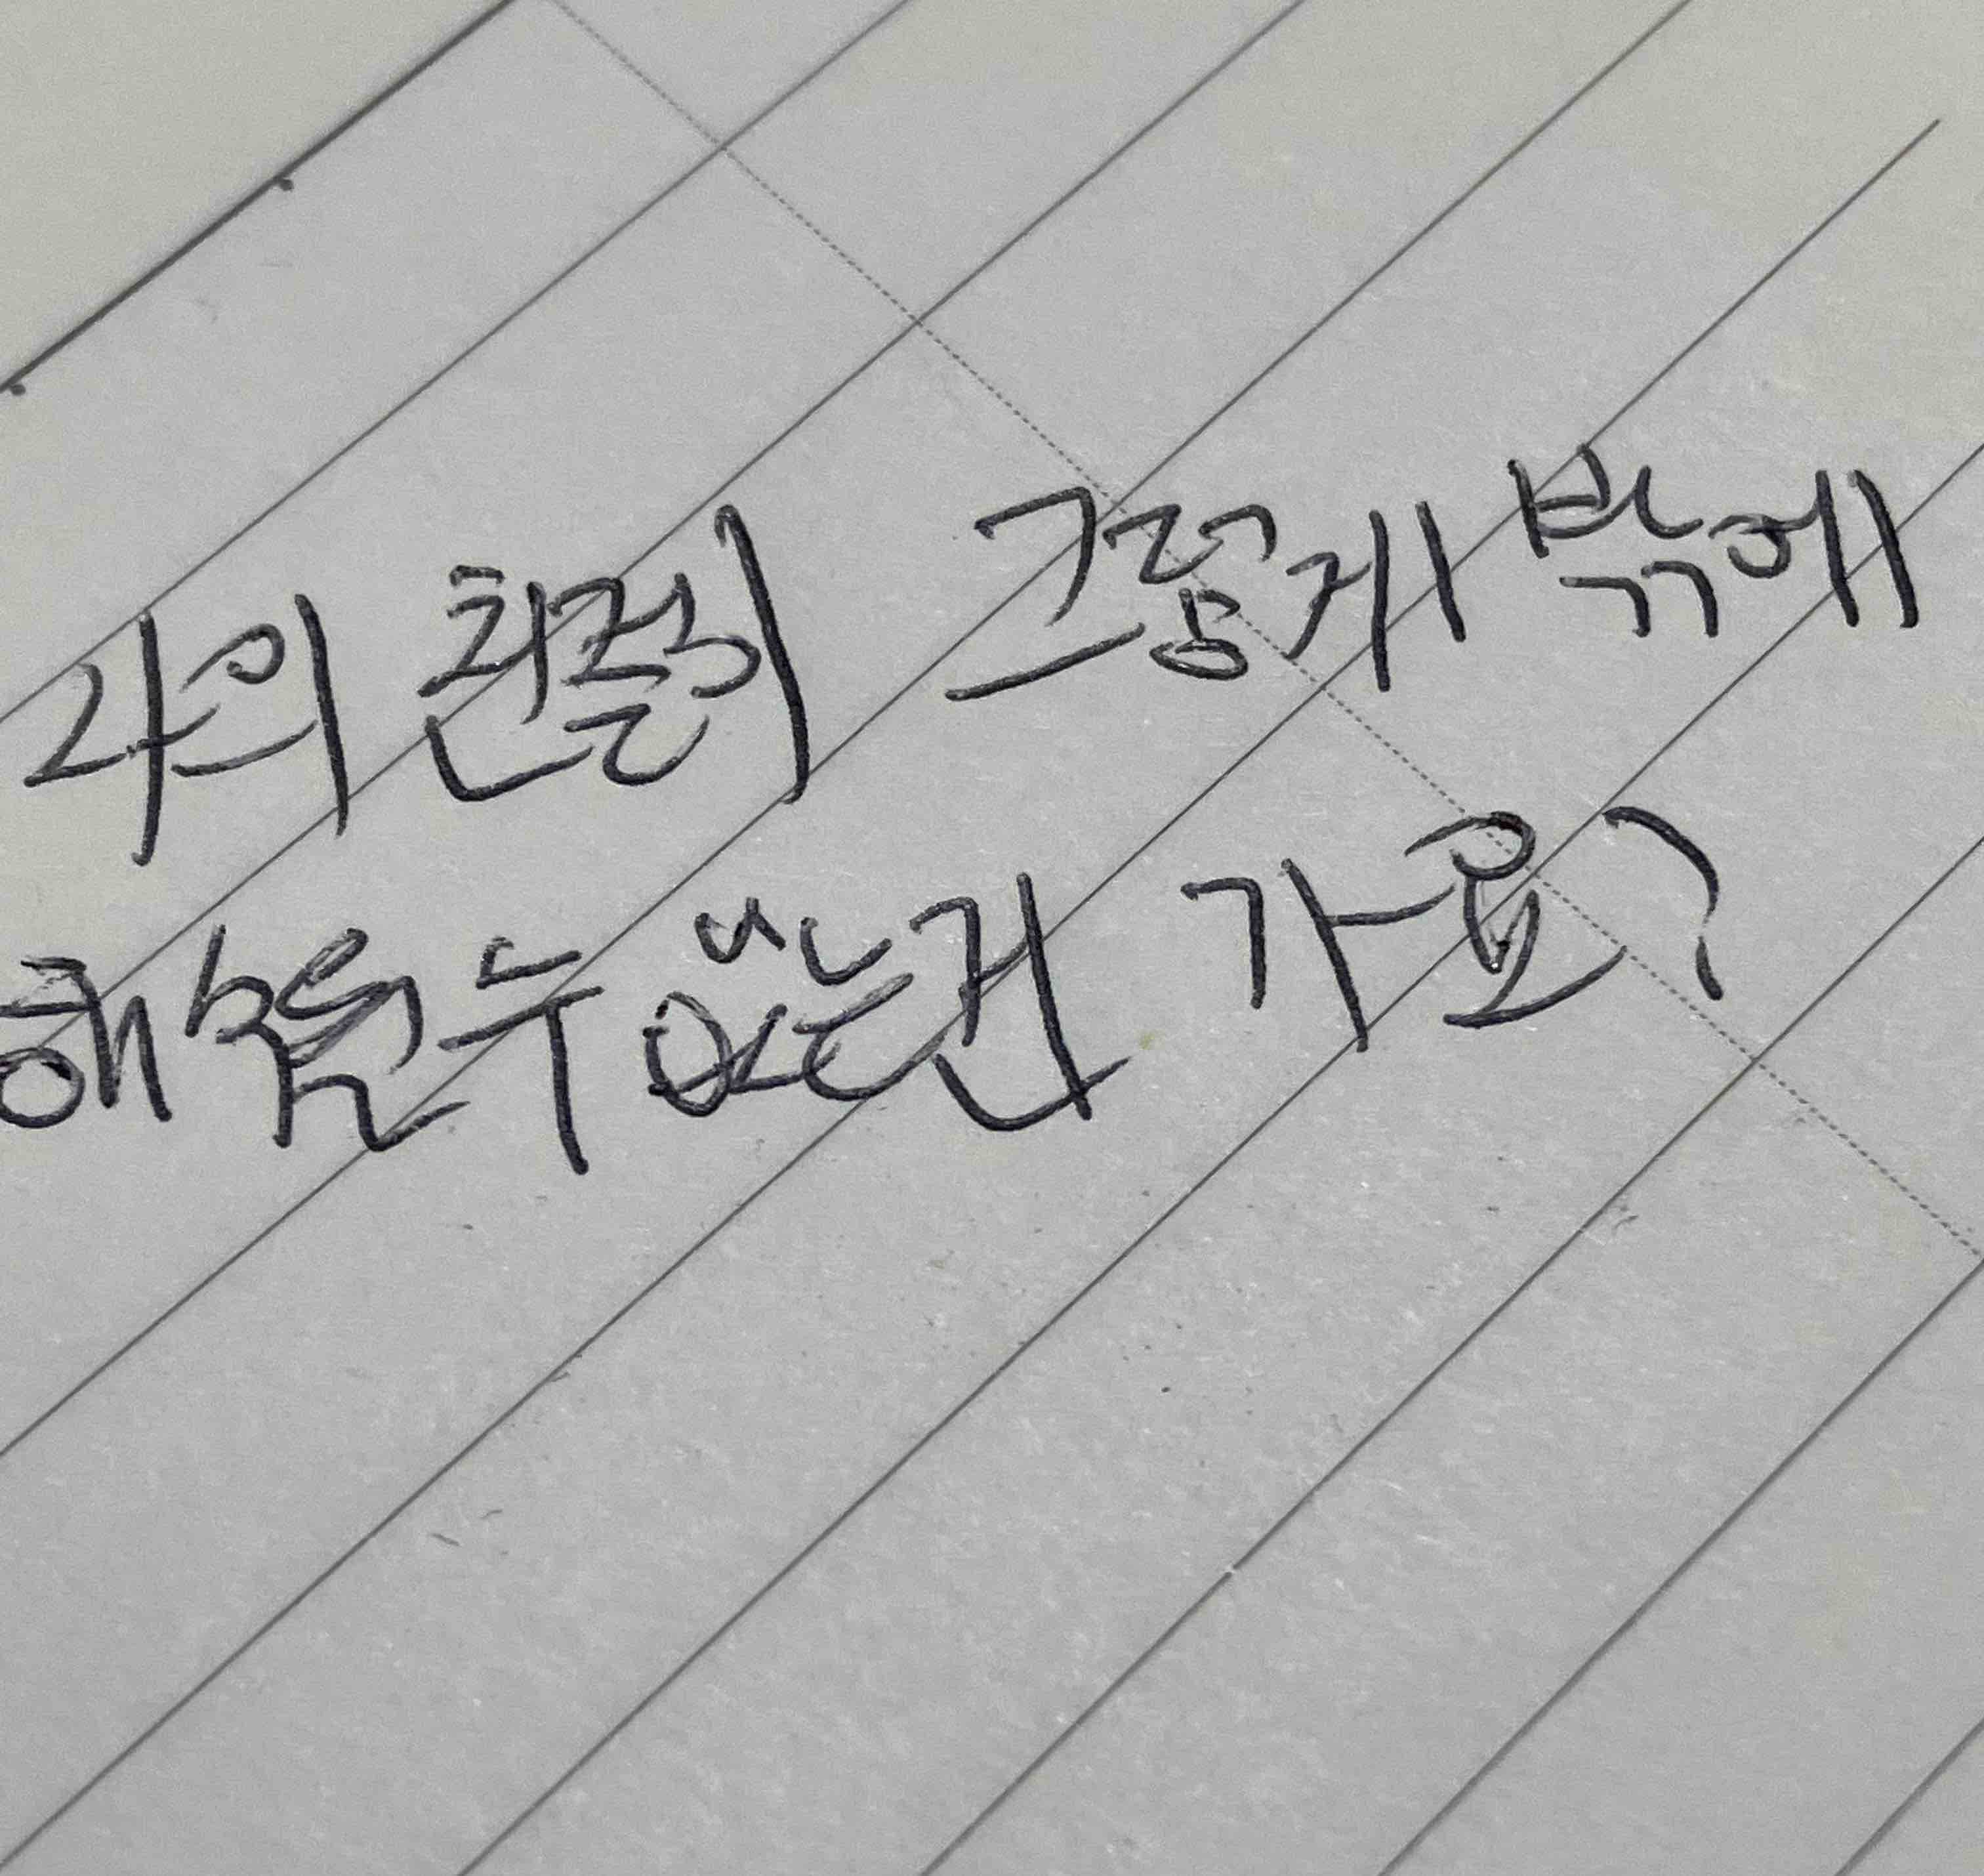 나의 친절이 그렇게 밖에
해석될수 없는건 가요?